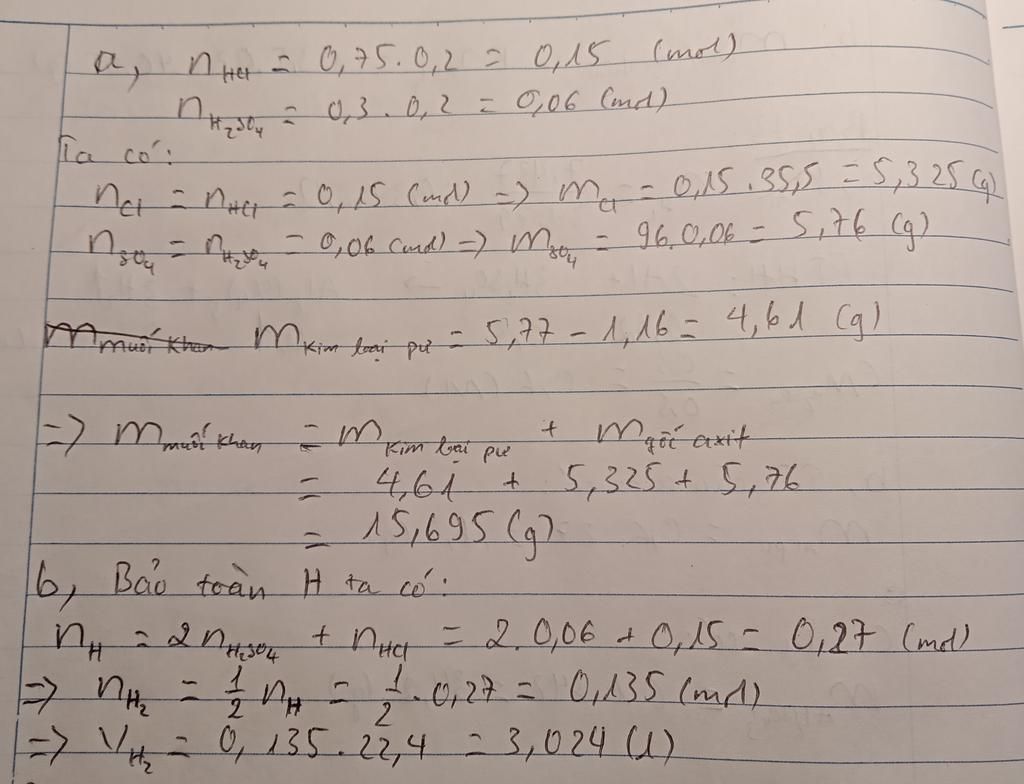 a, nHCl = 0,75.0,2 = 0,15 (mol)
nH₂SO₄ = 0,3.0,2 = 0,06 (mol)
Ta có:
nCl = nHCl = 0,15 (mol) => mCl = 0,15.35,5 = 5,325 (g)
nSO₄ = nH₂SO₄ = 0,06 (mol) => mSO₄ = 96.0,06 = 5,76 (g)
m muối khan m kim loại pư = 5,77 - 1,16 = 4,61 (g)
=> m muối khan = m kim loại pư + m gốc axit
= 4,61 + 5,325 + 5,76
= 15,695 (g)
b, Bảo toàn H ta có:
nH = 2nH₂SO₄ + nHCl = 2.0,06 + 0,15 = 0,27 (mol)
=> nH₂ = 1/2 nH = 1/2 . 0,27 = 0,135 (mol)
=> VH₂ = 0,135.22,4 = 3,024 (l)